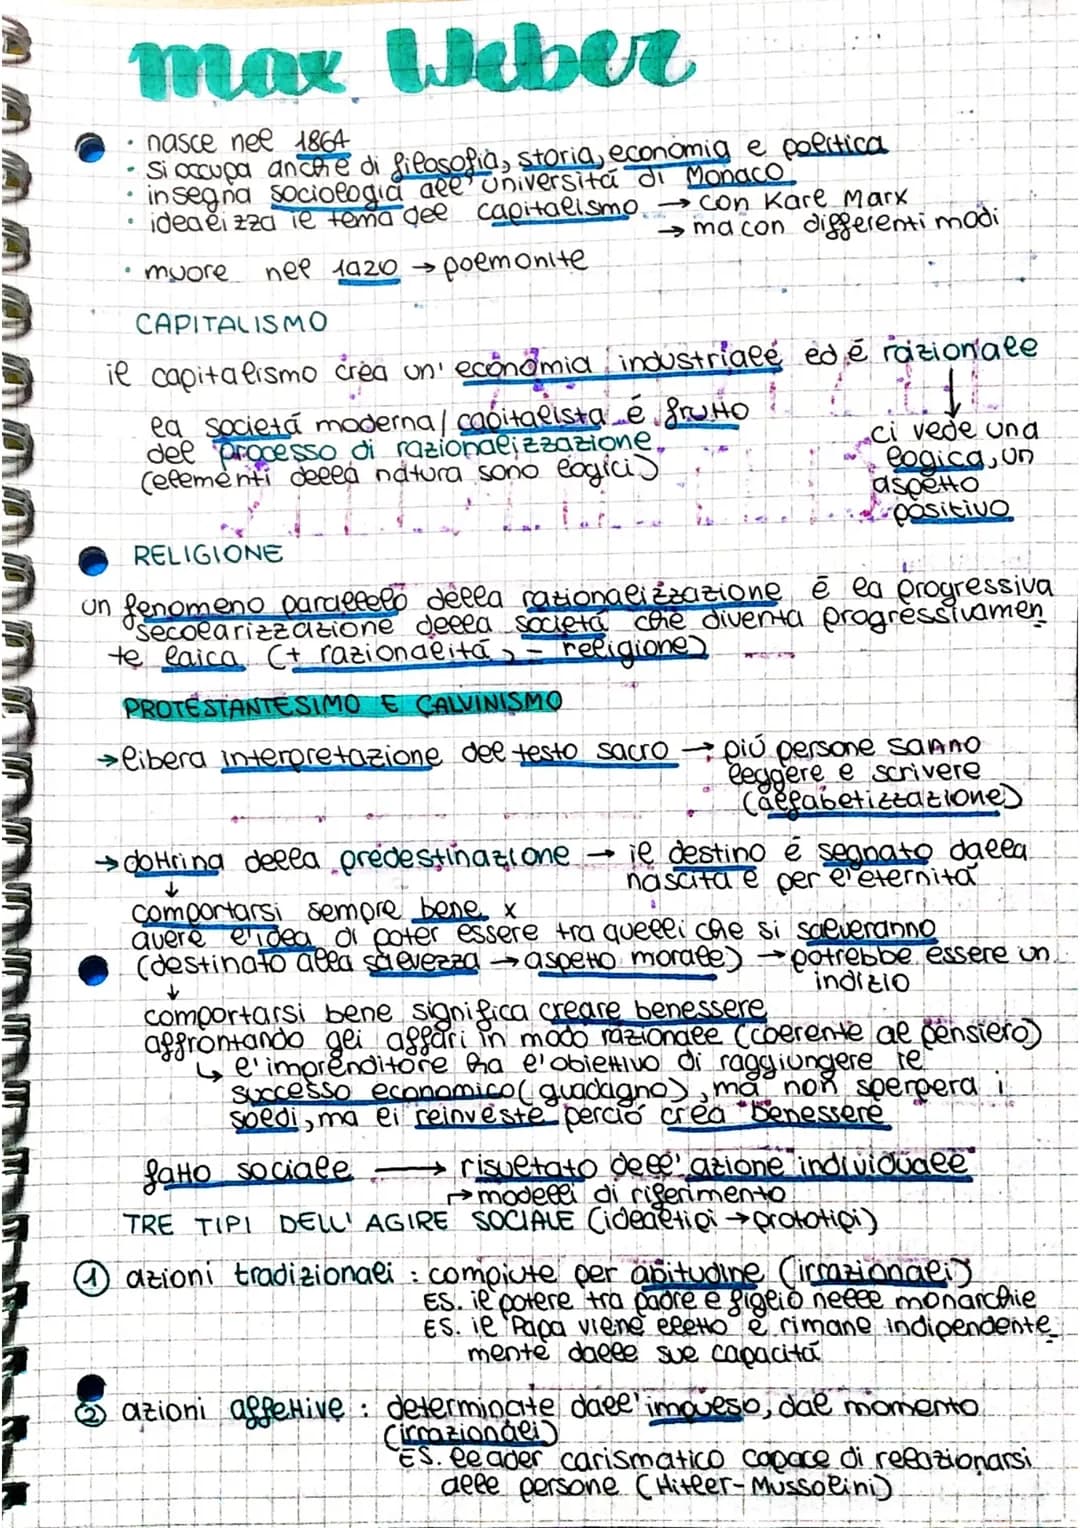 max Weber
• nasce nel 1864
• si occupa anche di filosofia, storia, economia e politica
• insegna sociologia all'università di Monaco
• idealizza il tema del capitalismo → con Karl Marx
→ ma con differenti modi
• muore nel 1920 → polmonite
CAPITALISMO
il capitalismo crea un' economia industriale ed é razionale
la società moderna/capitalista é frutto
del processo di razionalizzazione
(elementi della natura sono logici)
ci vede una
logica, un
aspetto
positivo
RELIGIONE
un fenomeno parallelo della razionalizzazione é la progressiva
secolarizzazione della societá che diventa progressivamen
te laica (+ razionalitá, - religione)
PROTESTANTESIMO E CALVINISMO
→ libera interpretazione del testo sacro → piú persone sanno
leggere e scrivere
(alfabetizzazione)
→ dottrina della predestinazione → il destino é segnato dalla
nascita e per l'eternitá
↓
comportarsi sempre bene x
avere l'idea di poter essere tra quelli che si salveranno
(destinato alla salvezza → aspetto morale) → potrebbe essere un
indizio
↓
comportarsi bene significa creare benessere
affrontando gli affari in modo razionale (coerente al pensiero)
↳ l'imprenditore ha l'obiettivo di raggiungere il
successo economico (guadagno), ma non sperpera i
soldi, ma li reinveste perció crea benessere
fatto sociale → risultato dell' azione individuale
→ modelli di riferimento
TRE TIPI DELL' AGIRE SOCIALE (idealtipi → prototipi)
① azioni tradizionali : compiute per abitudine (irrazionali)
ES. il potere tra padre e figlio nelle monarchie
ES. il Papa viene eletto e rimane indipendente
mente dalle sue capacitá
② azioni affettive : determinate dall'impulso, dal momento
(irrazionali)
ES. leader carismatico capace di relazionarsi
alle persone (Hitler-Mussolini)